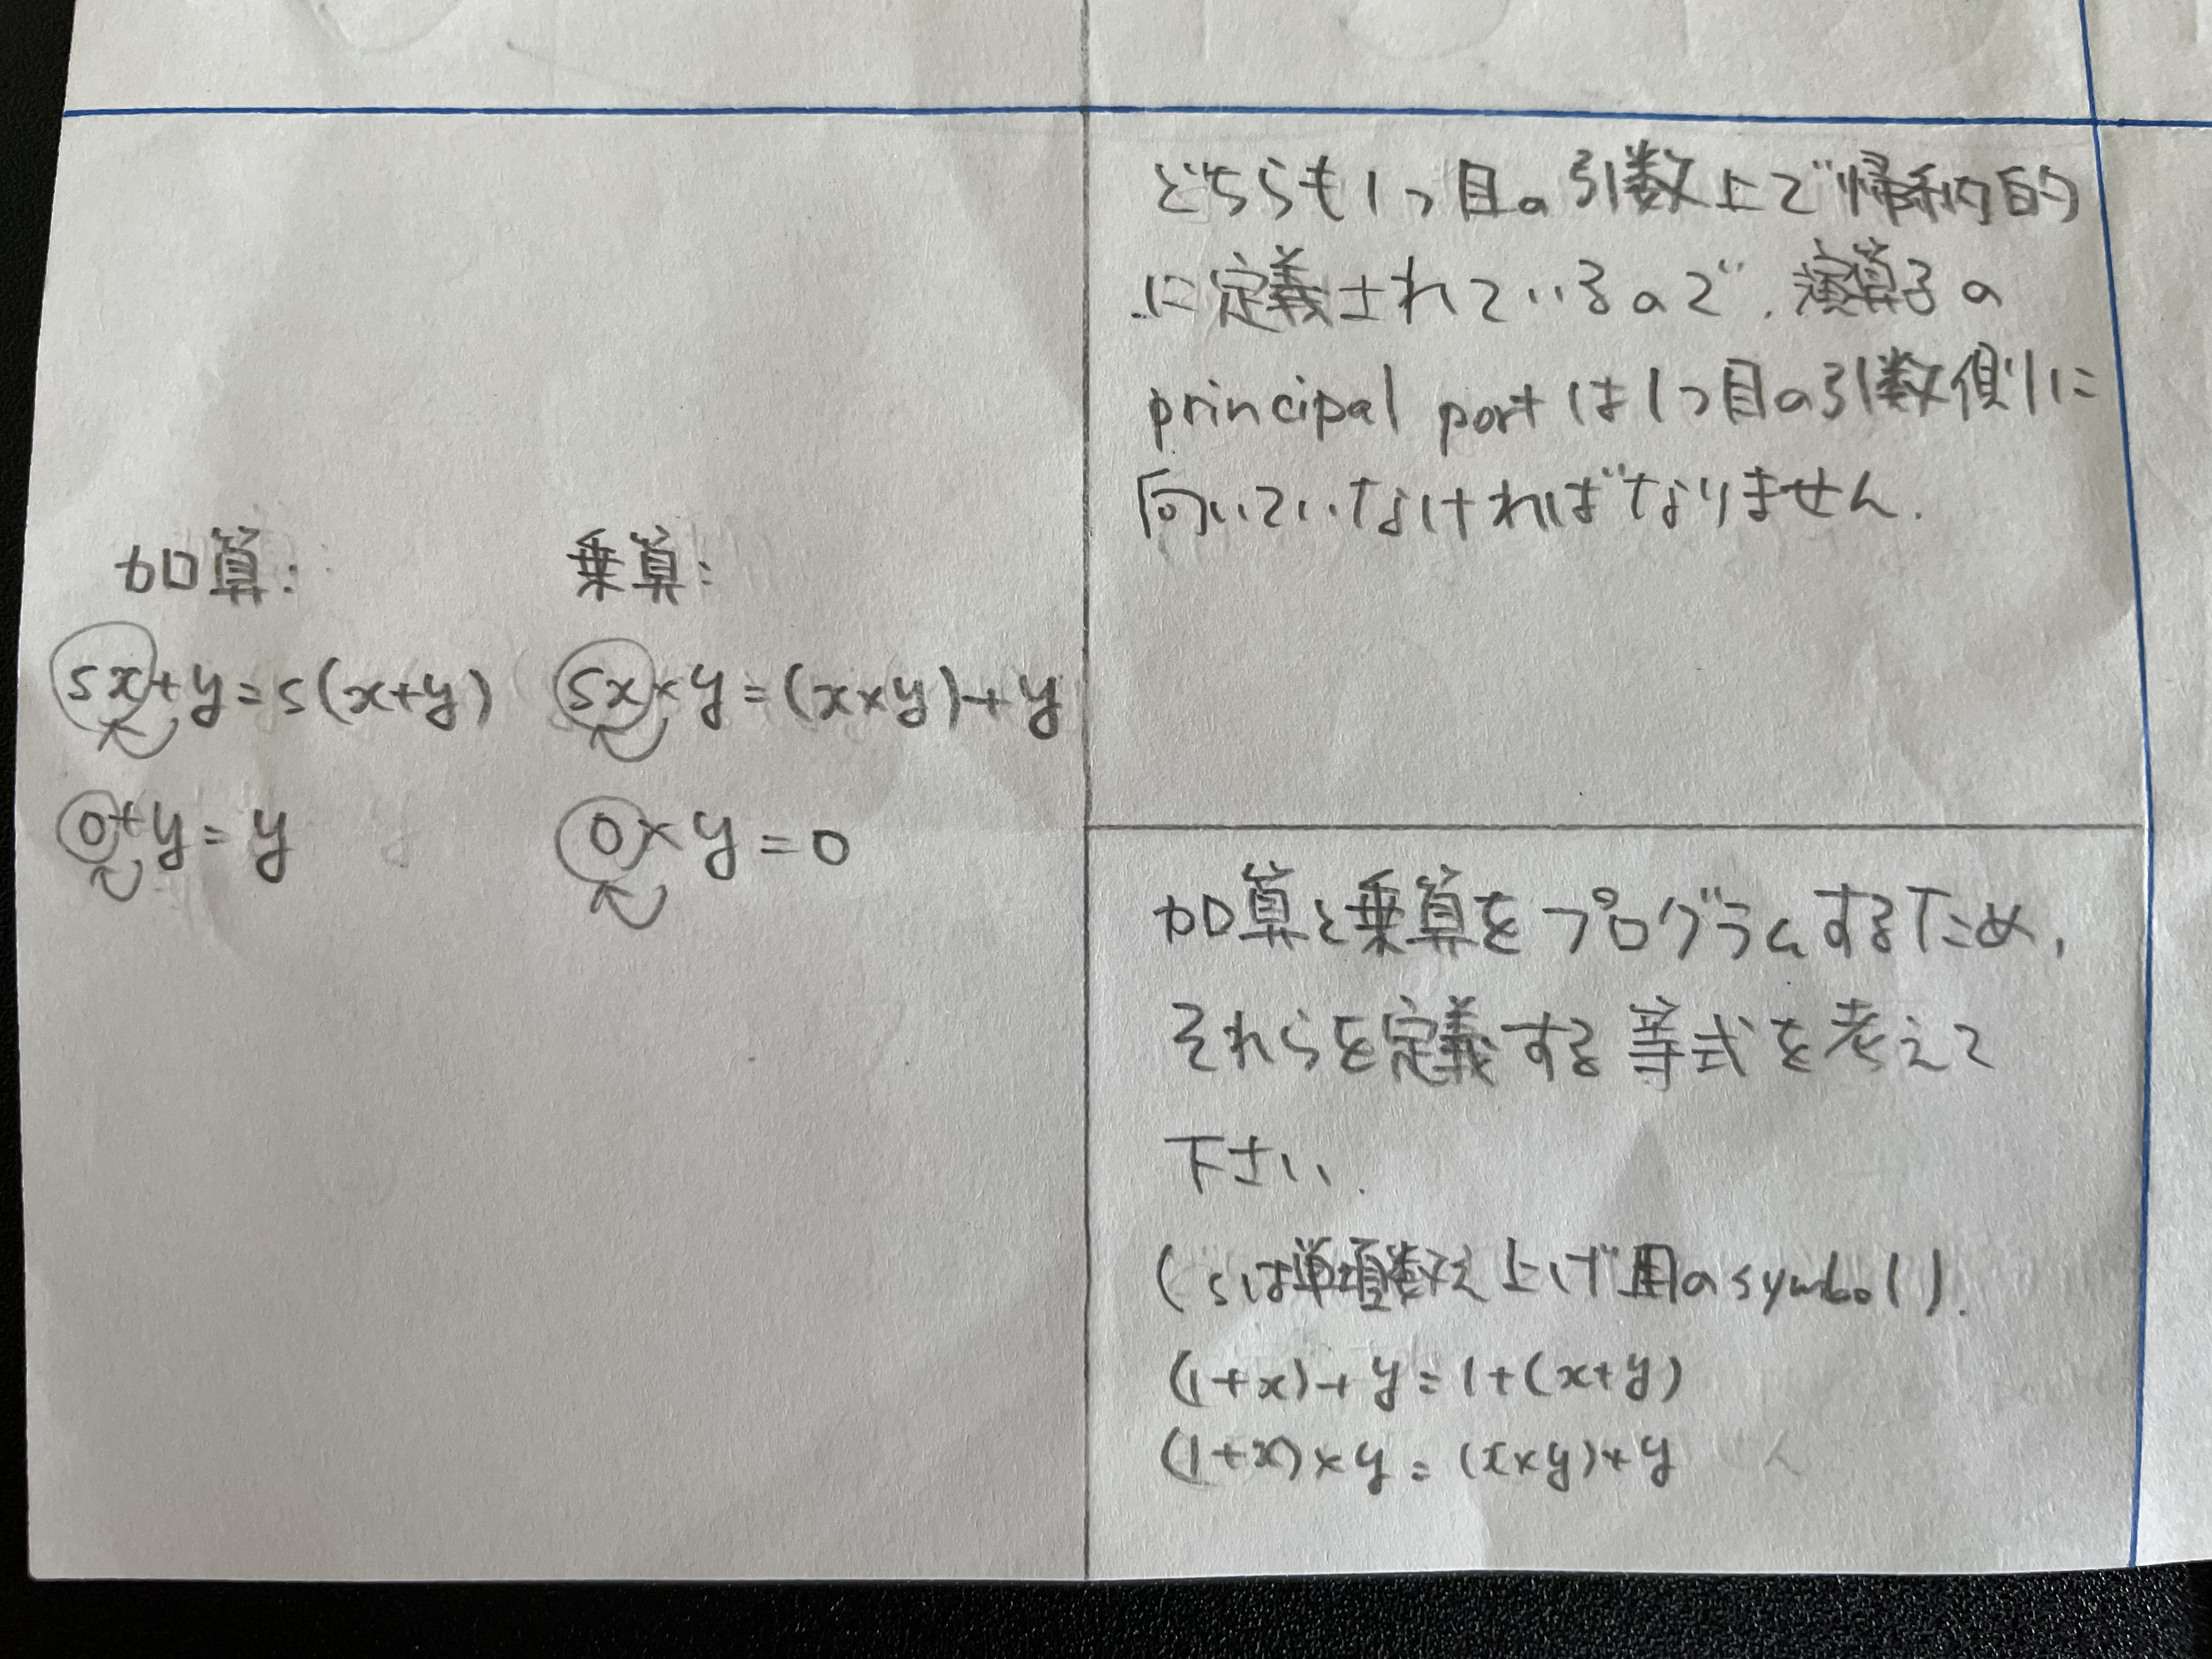 加算:
sx+y=s(x+y)
0+y=y
乗算:
sx×y=(x×y)+y
0×y=0
どちらも1つ目の引数上で帰納的
に定義されているので、演算子の
principal portは1つ目の引数側に
向いていなければなりません.
加算と乗算をプログラムするため,
それらを定義する等式を考えて
下さい.
(sは単項数え上げ用のsymbol).
(1+x)+y=1+(x+y)
(1+x)×y=(x×y)+y